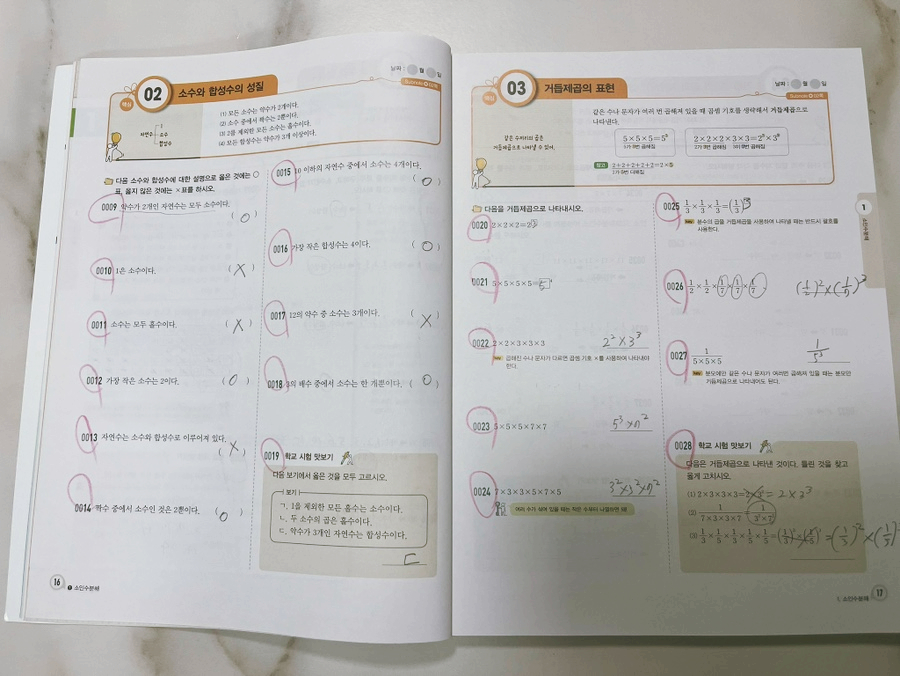 날짜: 월 일
핵심
02
소수와 합성수의 성질
자연수
1
소수
합성수
(1) 모든 소수는 약수가 2개이다.
(2) 소수 중에서 짝수는 2뿐이다.
(3) 2를 제외한 모든 소수는 홀수이다.
(4) 모든 합성수는 약수가 3개 이상이다.
다음 소수와 합성수에 대한 설명으로 옳은 것에는 ○
표, 옳지 않은 것에는 ×표를 하시오.
0009 약수가 2개인 자연수는 모두 소수이다.
( O )
0010 1은 소수이다. ( X )
0011 소수는 모두 홀수이다. ( X )
0012 가장 작은 소수는 2이다. ( O )
0013 자연수는 소수와 합성수로 이루어져 있다.
( X )
0014 짝수 중에서 소수인 것은 2뿐이다.
( O )
0015 10 이하의 자연수 중에서 소수는 4개이다.
( O )
0016 가장 작은 합성수는 4이다. ( O )
0017 12의 약수 중 소수는 3개이다. ( X )
0018 3의 배수 중에서 소수는 한 개뿐이다. ( O )
0019 학교 시험 맛보기
다음 보기에서 옳은 것을 모두 고르시오.
보기
ㄱ. 1을 제외한 모든 홀수는 소수이다.
ㄴ. 두 소수의 곱은 홀수이다.
ㄷ. 약수가 3개인 자연수는 합성수이다.
ㄷ
16 소인수분해
날짜: 월 일
핵심
03
거듭제곱의 표현
같은 수나 문자가 여러 번 곱해져 있을 때 곱셈 기호를 생략해서 거듭제곱으로
나타낸다.
같은 수끼리의 곱은
거듭제곱으로 나타낼 수 있어.
5×5×5=5³
5가 3번 곱해짐
2×2×2×3×3=2³×3²
2가 3번 곱해짐
참고 2+2+2+2+2=2×5
2가 5번 더해짐
다음을 거듭제곱으로 나타내시오.
0020 2×2×2=2³
0021 5×5×5×5=5
0022 2×2×3×3×3 2²×3³
곱해진 수나 문자가 다르면 곱셈 기호 ×를 사용하여 나타내야
한다.
0023 5×5×5×7×7 5³×7²
0024 7×3×3×5×7×5 3²×5²×7²
0025 1/3×1/3×1/3=(1/3)³
분수의 곱을 거듭제곱을 사용하여 나타낼 때는 반드시 괄호를
사용한다.
0026 1/2×1/2×1/7×1/7×1/7 (1/2)²×(1/7)³
0027 1/5×5×5 1/5³
분모에만 같은 수나 문자가 여러번 곱해져 있을 때는 분모만
거듭제곱으로 나타내어도 된다.
0028 학교 시험 맛보기
다음은 거듭제곱으로 나타낸 것이다. 틀린 것을 찾고
옳게 고치시오.
(1) 2×3×3×3= = 2×3³
1
소인수분해
1. 소인수분해 17